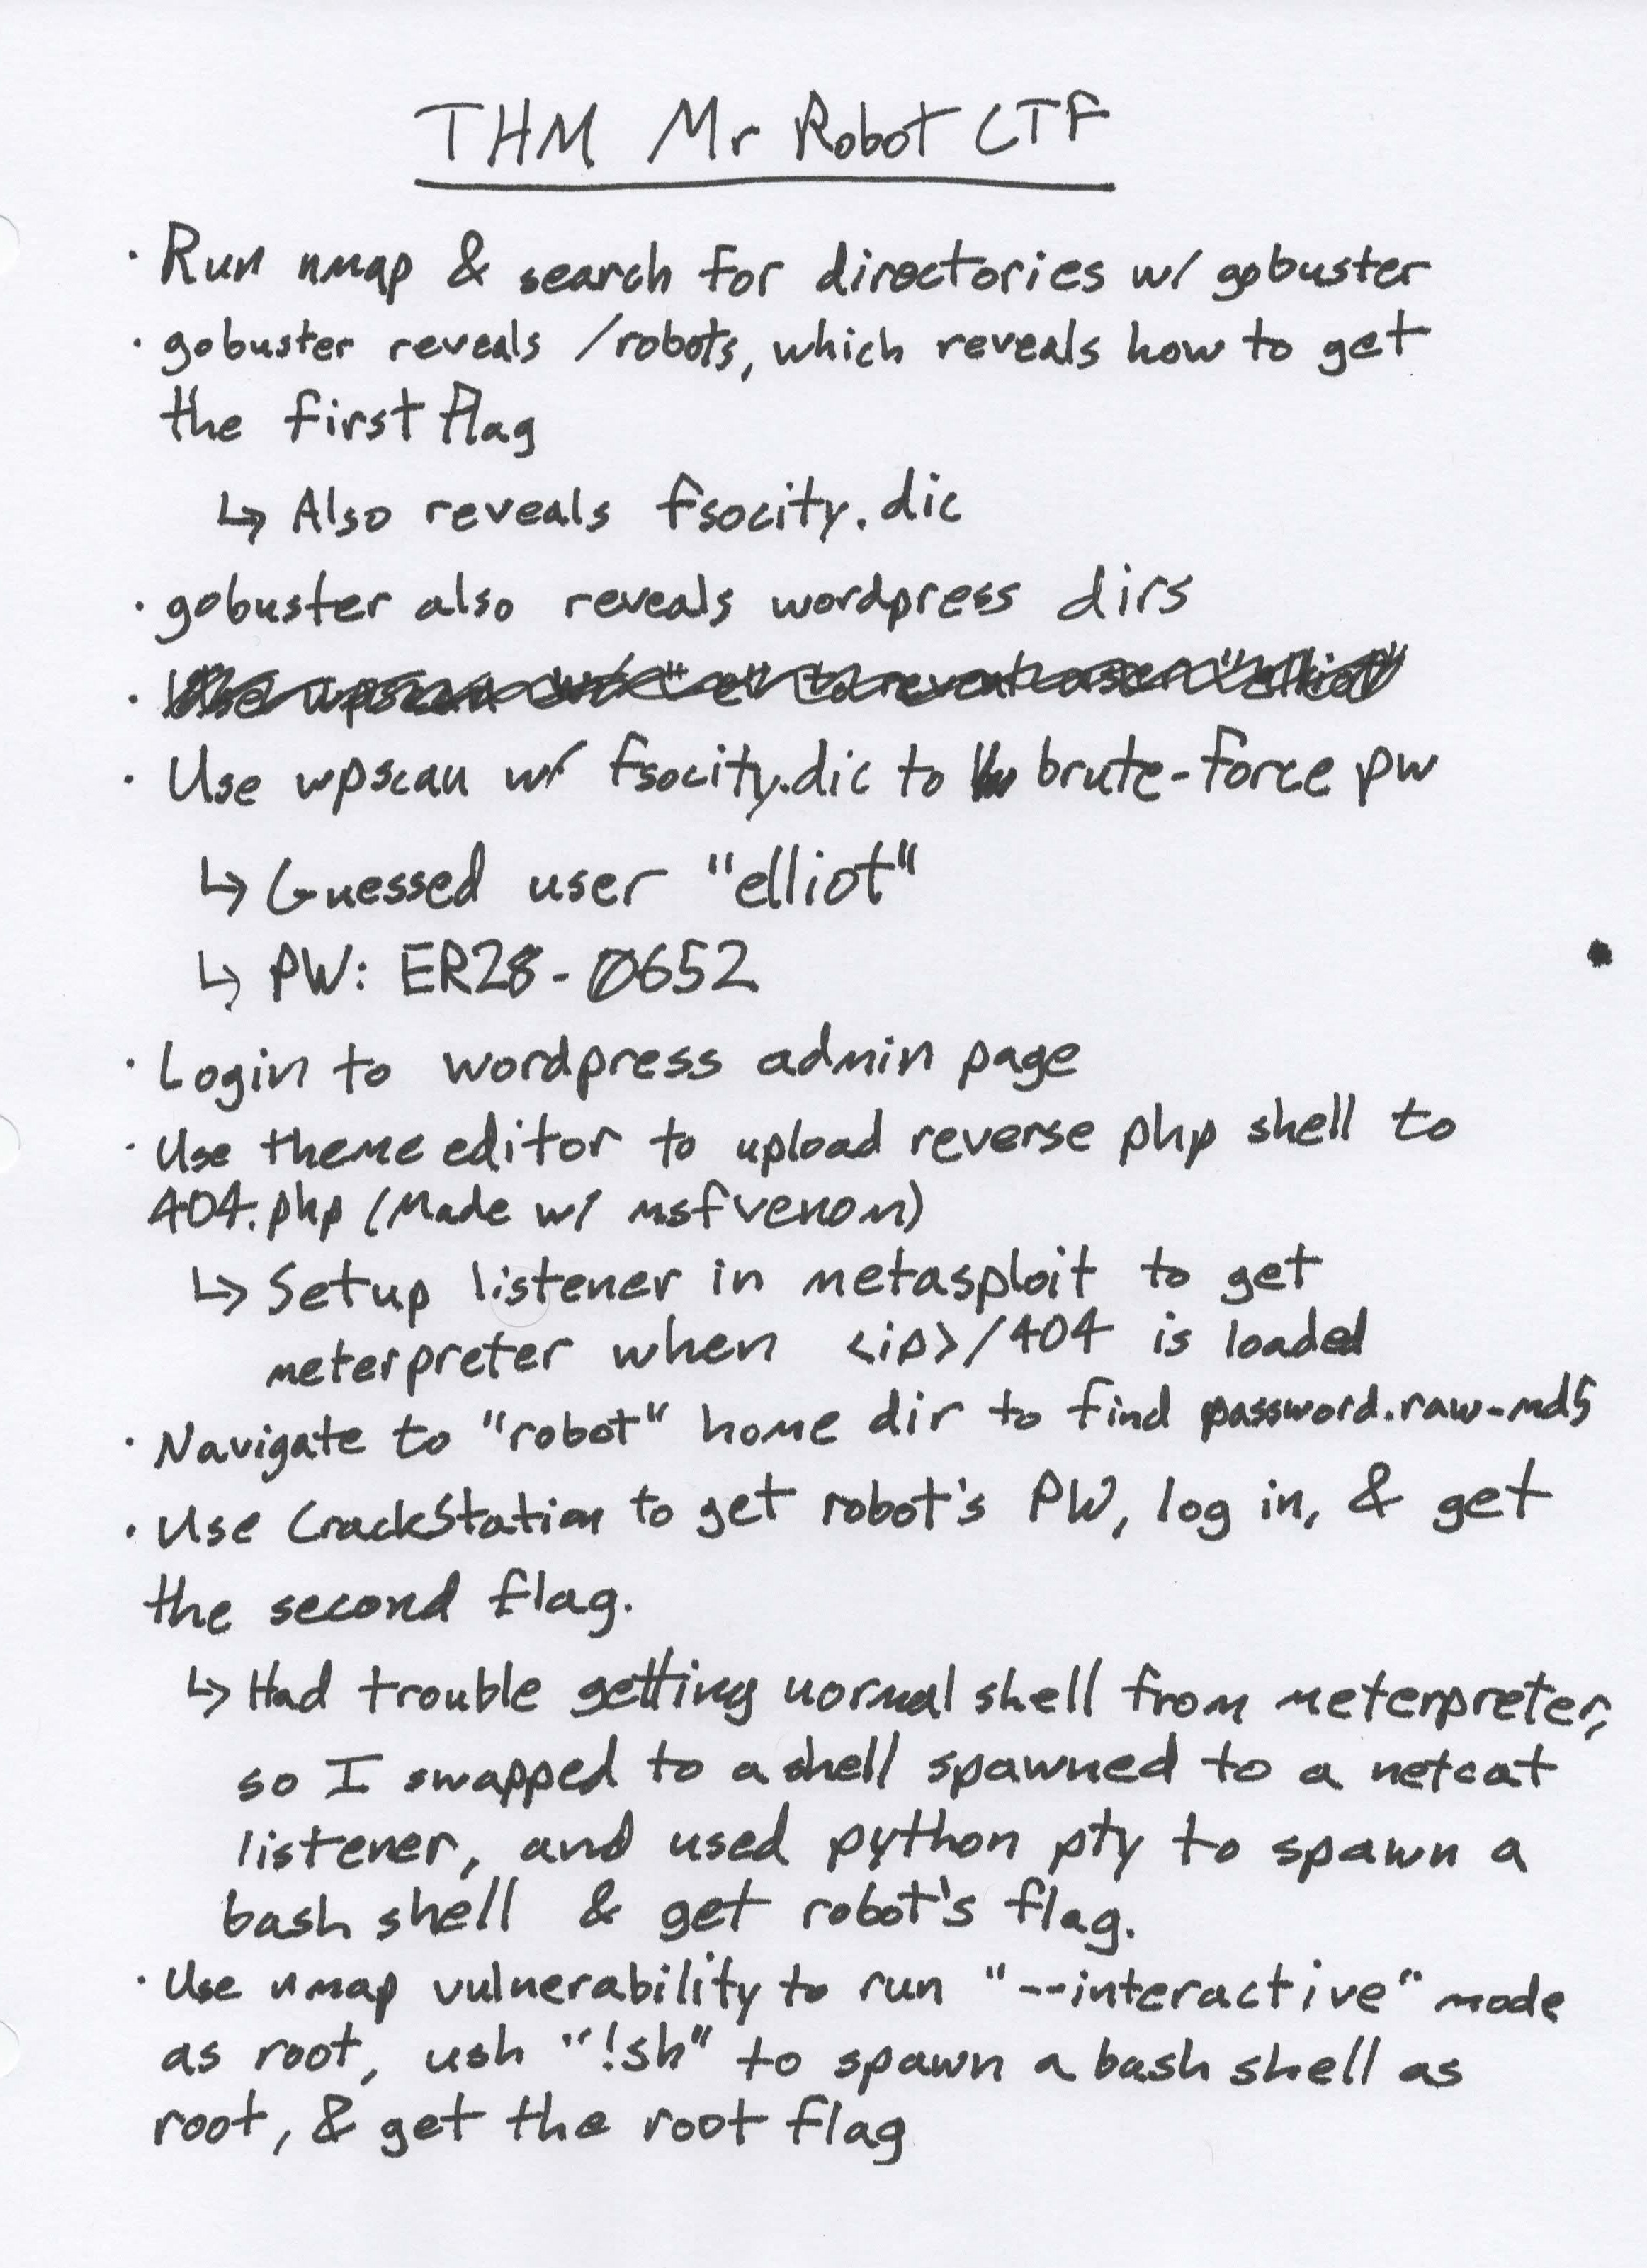 THM Mr Robot CTF
· Run nmap & search for directories w/ gobuster
· gobuster reveals /robots, which reveals how to get
the first flag
↳ Also reveals fsocity.dic
· gobuster also reveals wordpress dirs
· Use wpscan "e" to reveal user "elliot"
· Use wpscan w/ fsocity.dic to brute-force pw
↳ Guessed user "elliot"
↳ PW: ER28-0652
· Login to wordpress admin page
· Use theme editor to upload reverse php shell to
404.php (Made w/ msfvenom)
↳ Setup listener in metasploit to get
meterpreter when <ip>/404 is loaded
· Navigate to "robot" home dir to find password.raw-md5
· Use CrackStation to get robot's PW, log in, & get
the second flag.
↳ Had trouble getting normal shell from meterpreter,
so I swapped to a shell spawned to a netcat
listener, and used python pty to spawn a
bash shell & get robot's flag.
· Use nmap vulnerability to run "--interactive" mode
as root, ush "!sh" to spawn a bash shell as
root, & get the root flag